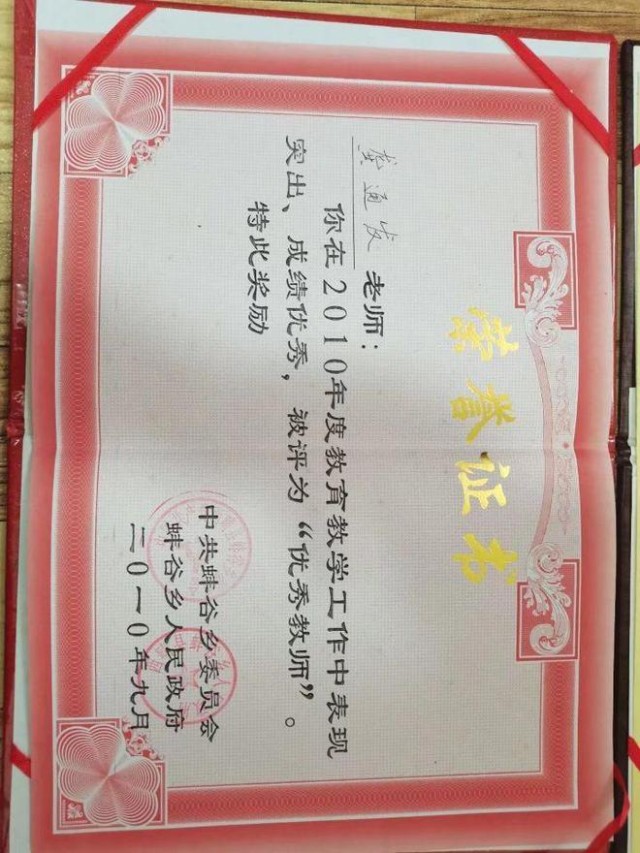 荣誉证书
龚通发 老师：
你在2010年度教育教学工作中表现
突出、成绩优秀，被评为“优秀教师”。
特此奖励
中共蚌谷乡委员会
蚌谷乡人民政府
二〇一〇年九月